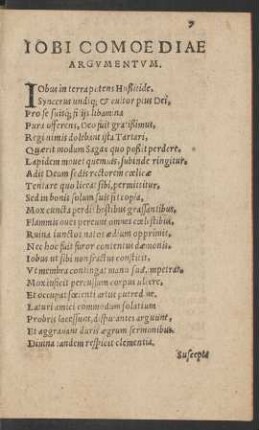 IOBI COMOEDIAE
ARGVMENTVM.
IObus in terra potens Hussitide,
Syncerus undiq; & cultor pius Dei,
Pro se suisq; filijs libamina
Pura offerens, Deo fuit gratissimus,
Regi nimis dolebant ista Tartari,
Quærit modum Sagax quo possit perdere,
Lapidem mouet quemuis, subinde ringitur,
Adit Deum sedis rectorem cœlicæ
Tentare quo liceat sibi, permittitur,
Sed in bonis solum fuit fit copia,
Mox cuncta perdit hostibus grassantibus,
Flammis oues pereunt omnes cœlestibus,
Ruina iunctos natos ædium opprimit,
Nec hoc fuit furor contentus dæmonis,
Iobus ut sibi non fractus constitit,
Vt membra contingat manu sua, impetrat,
Mox inficit percussum corpus ulcere,
Et occupat fœtenti artus putredine,
Laturi amici commodum solatium
Probris lacessunt, disputantes arguunt,
Et aggrauant duris ægrum sermonibus.
Diuina tandem respicit clementia,
Suscepta